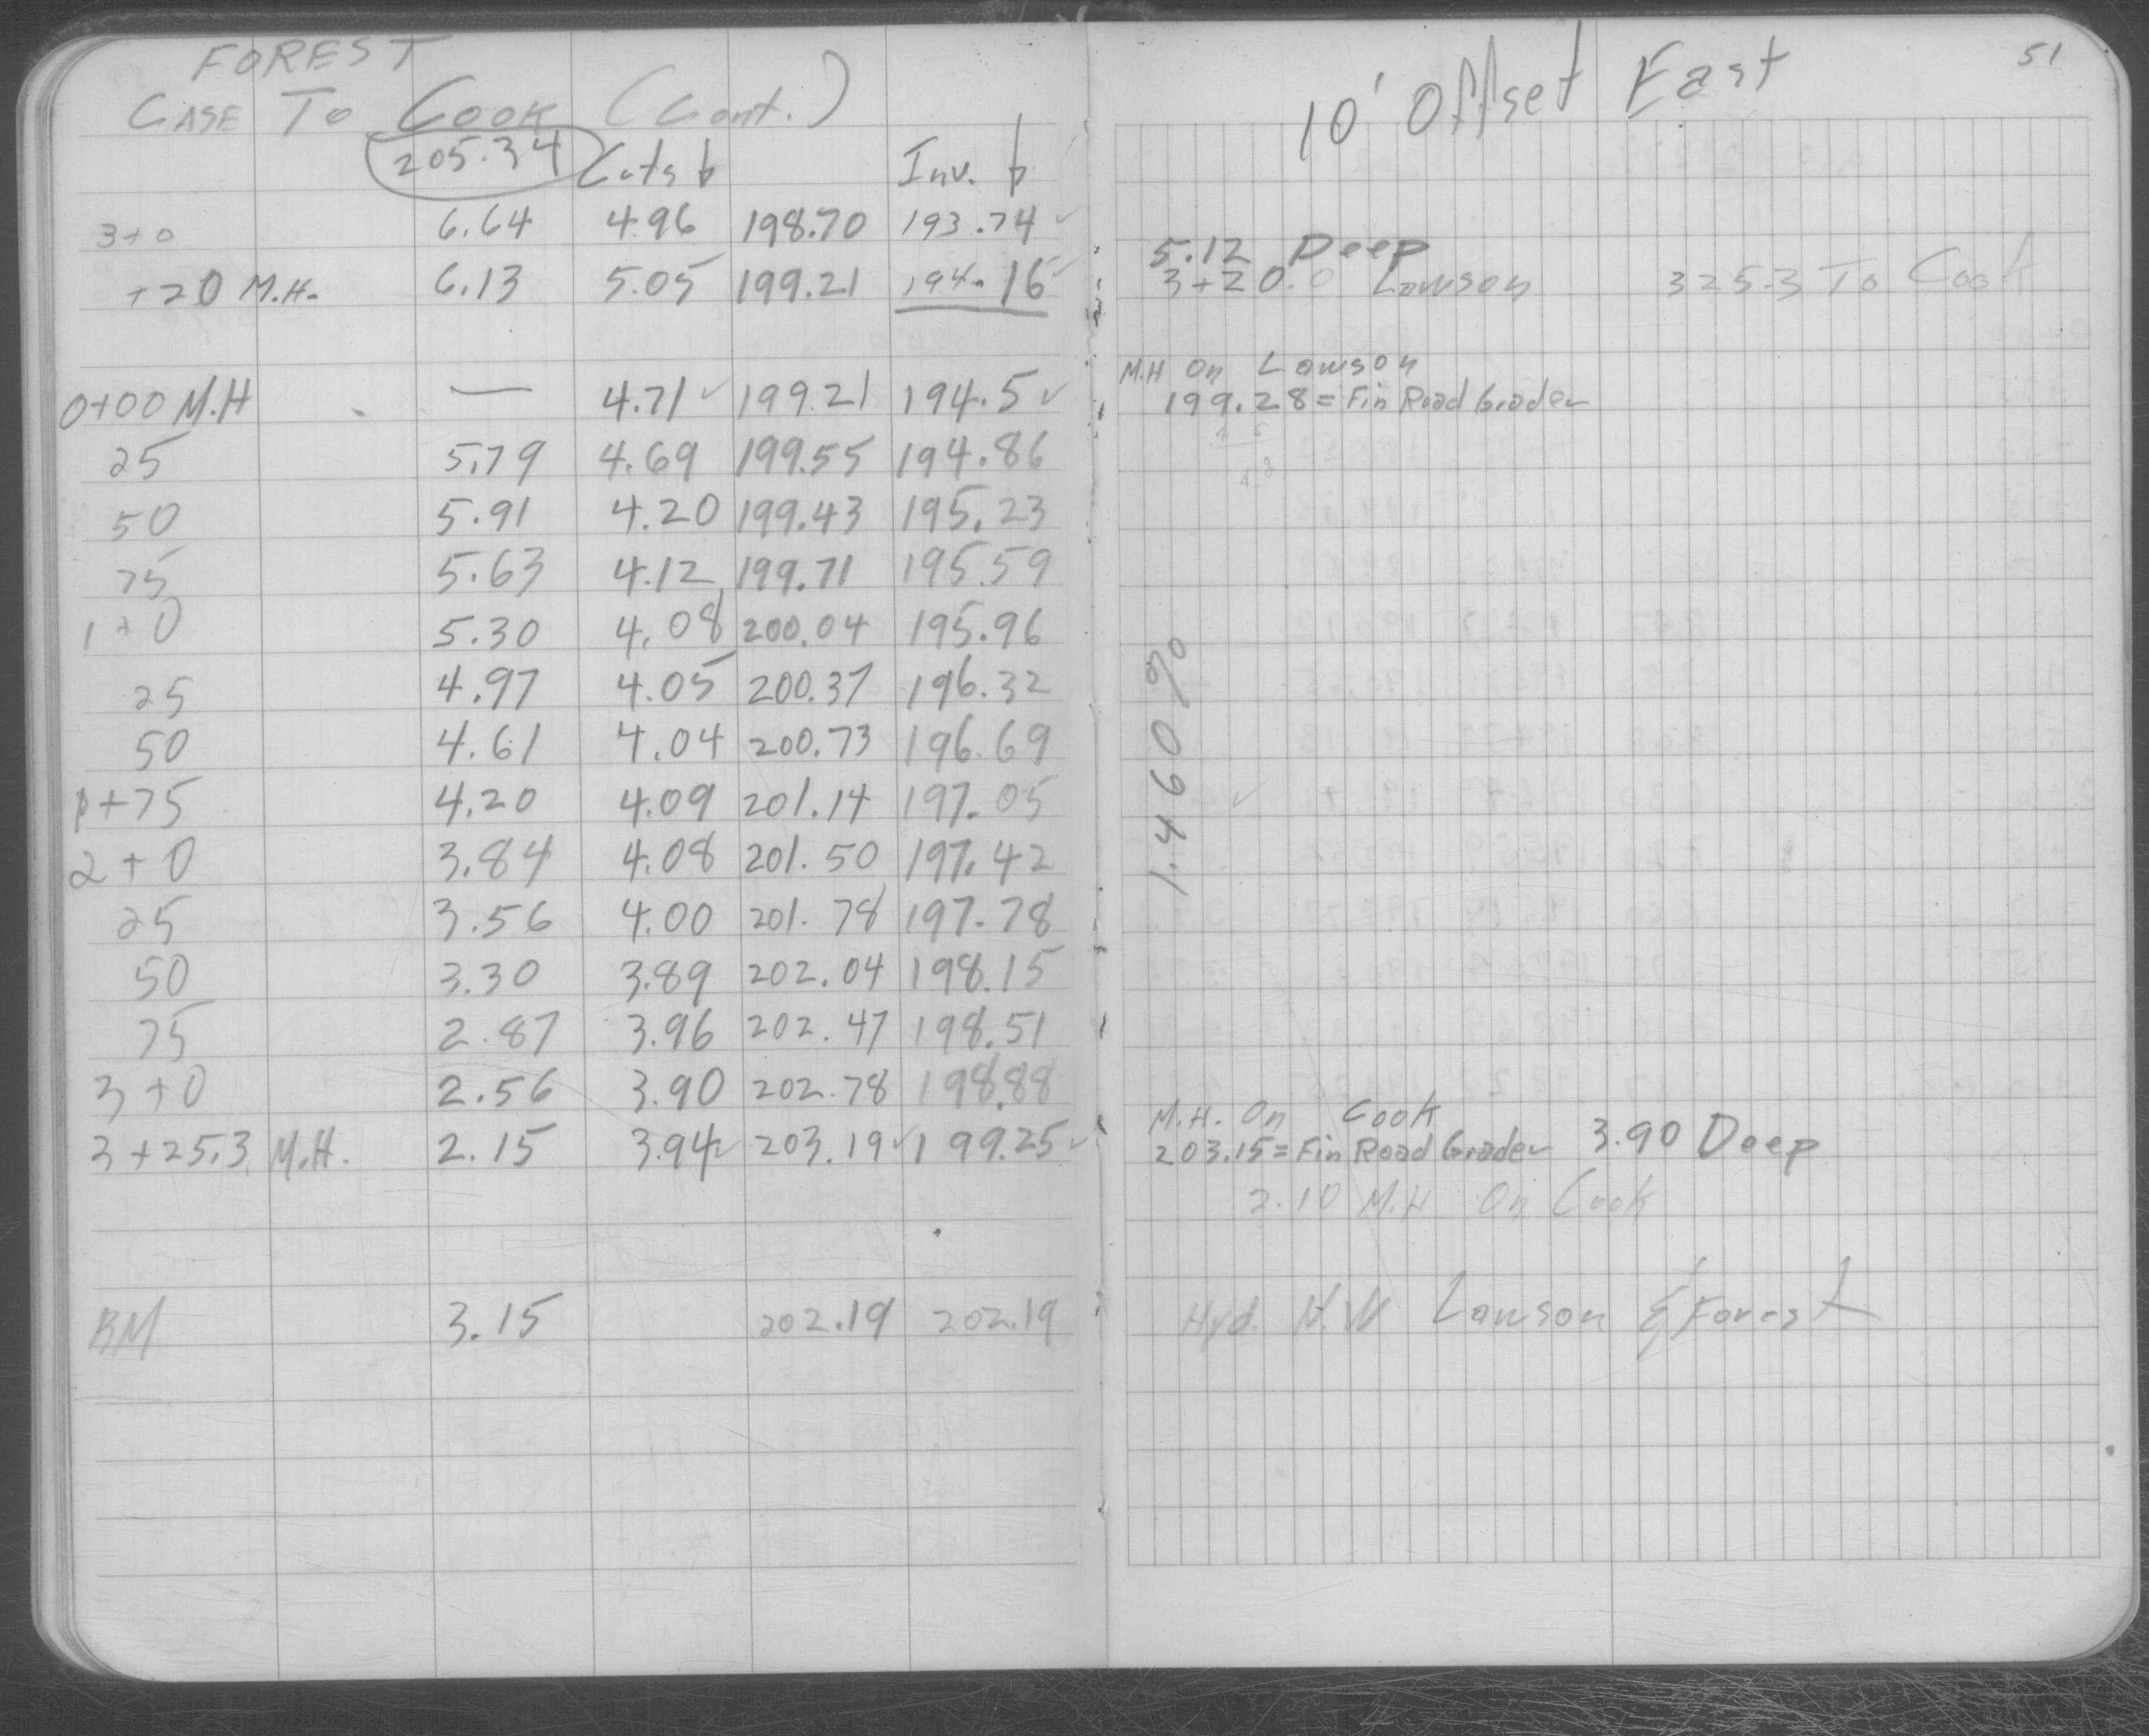 FOREST
CASE To Cook (Cont.)
205.34 Cuts Inv.
3+0 6.64 4.96 198.70 193.74 ✓
+20 M.H. 6.13 5.05 199.21 194.16 ✓
0+00 M.H — 4.71 ✓ 199.21 194.5 ✓
25 5.79 4.69 199.55 194.86
50 5.91 4.20 199.43 195.23
75 5.63 4.12 199.71 195.59
1+0 5.30 4.08 200.04 195.96
25 4.97 4.05 200.37 196.32
50 4.61 4.04 200.73 196.69
1+75 4.20 4.09 201.14 197.05
2+0 3.84 4.08 201.50 197.42
25 3.56 4.00 201.78 197.78
50 3.30 3.89 202.04 198.15
75 2.87 3.96 202.47 198.51
3+0 2.56 3.90 202.78 198.88
3+25.3 M.H. 2.15 3.94 ✓ 203.19 ✓ 199.25 ✓
BM 3.15 202.19 202.19
51
10' Offset East
5.12 Deep
3+20.0 Lawson 325.3 To Cook
M.H On Lawson
199.28 = Fin Road Grader
1.460% ✓
M.H. On Cook
203.15 = Fin Road Grader 3.90 Deep
2.10 M.H On Cook
Hyd. N.W Lawson & Forest